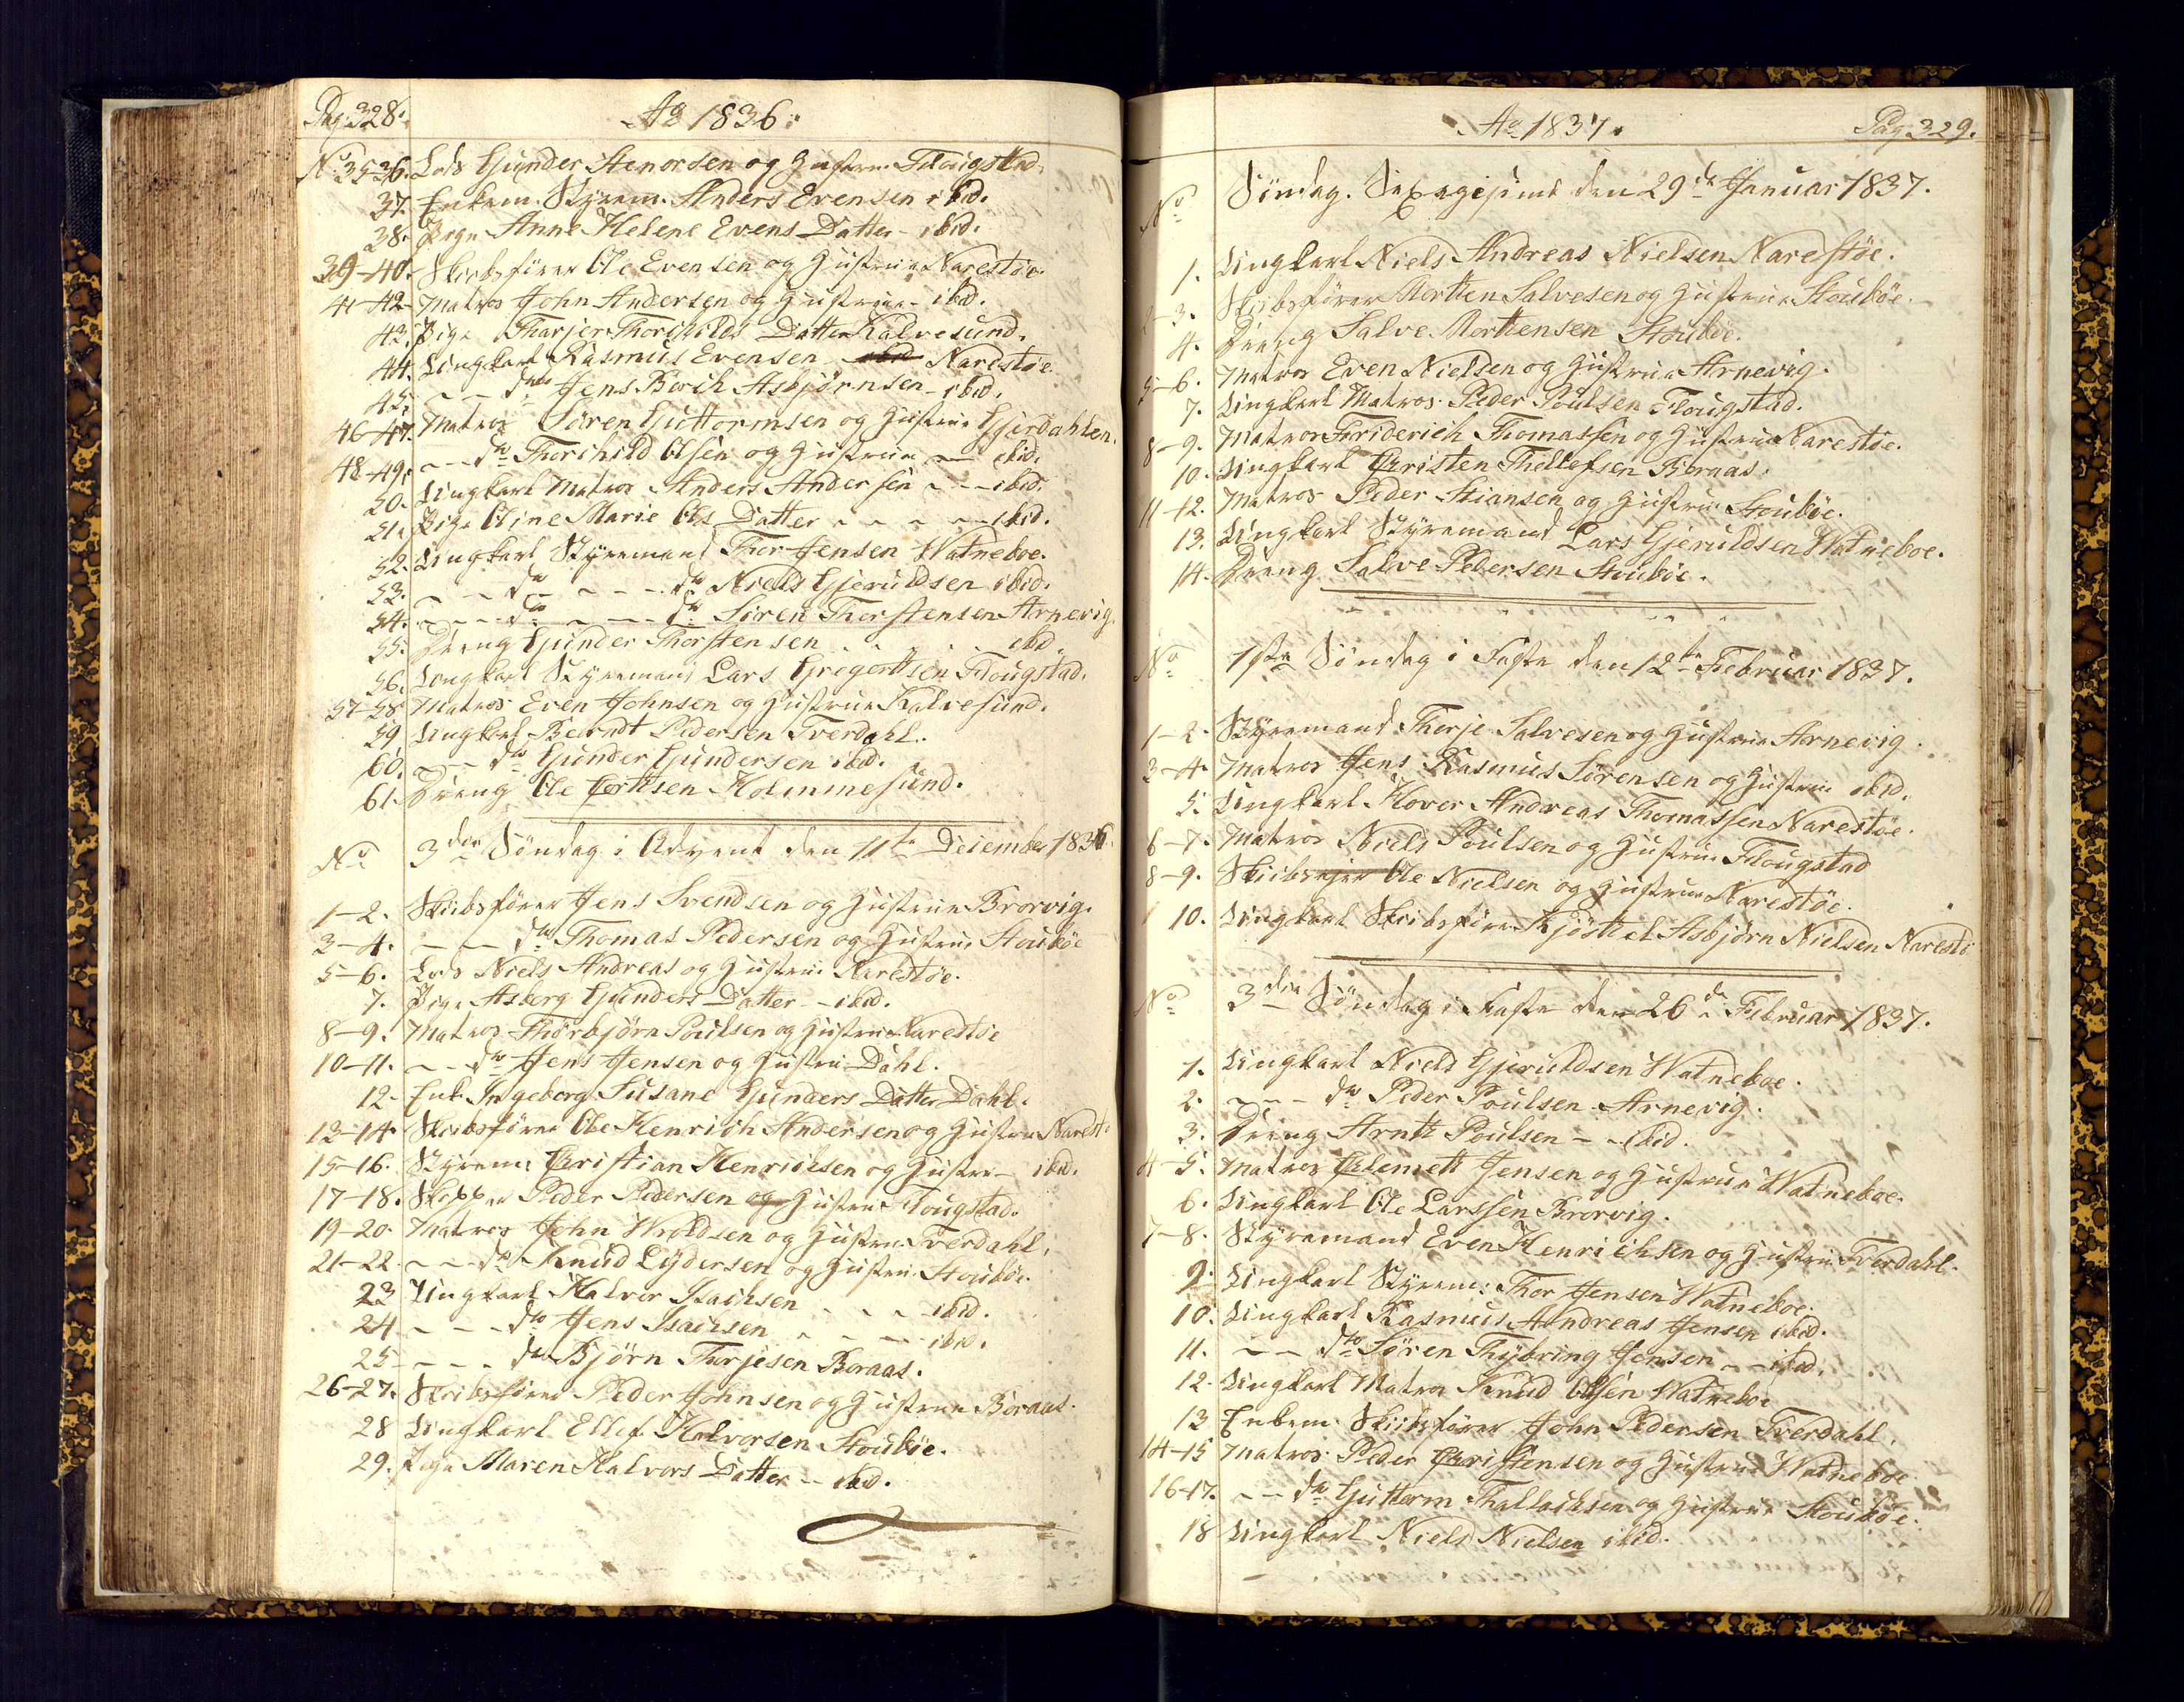 Pag: 328.
Ao 1836.
No 35-36. Lods Gunder Stenorsen og Hustrue Flougstad.
37. Enkem. Styrem. Anders Evensen ibid.
38. Pige Anne Helene Evens Datter - ibid.
39-40. Skibsfører Ole Evensen og Hustrue Narestøe.
41-42. Matros John Andersen og Hustrue - ibid.
43. Pige Tharjer Thorchilds Datter Kalvesund.
44. Ungkarl Rasmus Evensen ibid Narestøe.
45. - - do Jens Berih Asbjørnsen - ibid.
46-47. Matros Søren Guttormsen og Hustrue Gjerdahlen.
48-49. - - do Thorchild Olsen og Hustrue - ibid.
50. Ungkarl Matros Anders Andersen - - ibid.
51. Pige Oline Marie Ols Datter - - - - ibid.
52. Ungkarl Styremand Thor Jensen Watneboe.
53. - - do - - - do Niels Gjeruldsen ibid.
54. - - - do - - - do Søren Thorstensen Arnevig.
55. Dreng Gunder Thorstensen . . . . ibid.
56. Ungkarl Styremand Lars Gregortsen Flougstad.
57-58. Matros Even Johnsen og Hustrue Kalvesund.
59. Ungkarl Berndt Pedersen Tverdahl.
60. - - do Gunder Gundersen ibid.
61. Dreng Ole Cortsen Holmmesund.
No 3die Søndag i Advent den 11te December 1836.
1-2. Skibsfører Jens Svendsen og Hustrue Brorvig.
3-4. - - do Thomas Pedersen og Hustrue Stoubøe
5-6. Lods Niels Andreas og Hustrue Narestøe.
7. Pige Asberg Gunders Datter - ibid.
8-9. Matros Thorbjørn Poulsen og Hustrue Narestøe
10-11. - - do Jens Jensen og Hustrue Dahl.
12. Enke Ingeborg Susane Gunders Datter Dahl.
13-14. Skibsfører Ole Henrich Andersen og Hustrue Narest.
15-16. Styrem: Christian Henricsen og Hustrue - ibid.
17-18. Skipper Peder Pedersen og Hustrue Flougstad.
19-20. Matros John Wroldsen og Hustrue Tverdahl.
21-22. - - do Knud Lydersen og Hustrue Stoubøe.
23 Ungkarl Halvor Isachsen - - - ibid.
24 - - - do Jens Isachsen - - - ibid.
25 - - - do Bjørn Therjesen Boraas.
26-27. Skibsfører Peder Johnsen og Hustrue Boraas.
28 Ungkarl Ellef Halvorsen Stoubøe.
29. Pige Maren Halvors Datter - ibid.
Ao 1837.
Pag 329.
No Søndag. Sexagesima den 29de Januar 1837.
1. Ungkarl Niels Andreas Nielsen Narestøe.
2-3. Skibsfører Morten Salvesen og Hustrue Stoubøe.
4. Dreng Salve Mortensen Stoubøe.
5-6. Matros Even Nielsen og Hustrue Arnevig.
7. Ungkarl Matros Peder Poulsen Flougstad.
8-9. Matros Friderich Thomassen og Hustrue Narestøe.
10. Ungkarl Christen Thellefsen Boraas.
11-12. Matros Peder Stiansen og Hustrue Stoubøe.
13. Ungkarl Styremand Lars Gjeruldsen Watneboe.
14. Dreng Salve Pedersen Stoubøe.
No 1ste Søndag i Faste den 12te Februar 1837.
1-2. Styremand Therje Salvesen og Hustrue Arnevig.
3-4. Matros Jens Rasmus Sørensen og Hustrue ibid.
5. Ungkarl Hover Andreas Thomassen Narestøe.
6-7. Matros Niels Poulsen og Hustrue Flougstad
8-9. Skibsejer Ole Nielsen og Hustrue Narestøe.
10. Ungkarl Skibsfører Kjøstel Asbjørn Nielsen Narestø
No 3die Søndag i Faste den 26de Februar 1837.
1. Ungkarl Niels Gjeruldsen Watneboe.
2. - - - do Peder Poulsen Arnevig.
3. Dreng Arnt Poulsen - - ibid.
4-5. Matros Clemett Jensen og Hustrue Watneboe.
6. Ungkarl Ole Larssen Brorvig.
7-8. Styremand Even Henrichsen og Hustrue Tverdahl.
9. Ungkarl Styrem: Thor Jensen Watneboe.
10. Ungkarl Rasmus Andreas Jensen ibid.
11. - - do Søren Thybring Jensen - - ibid.
12. Ungkarl Matros Knud Olsen Watneboe
13 Enkem. Skibsfører John Pedersen Tverdahl.
14-15 Matros Peder Christensen og Hustrue Watneboe
16-17. - - do Guttorm Thallachsen og Hustrue Stoubøe.
18 Ungkarl Niels Nielsen ibid.